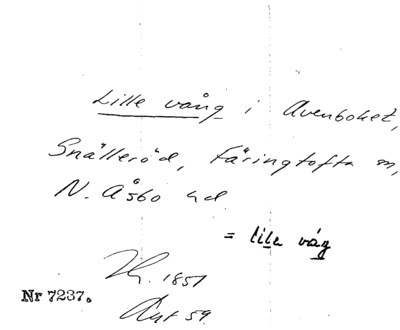 Lille vång i Avenboket,
Snälleröd, Färingtofta sn,
N. Åsbo hd
= lile våg
Nr 7237.
1851
Ant 59